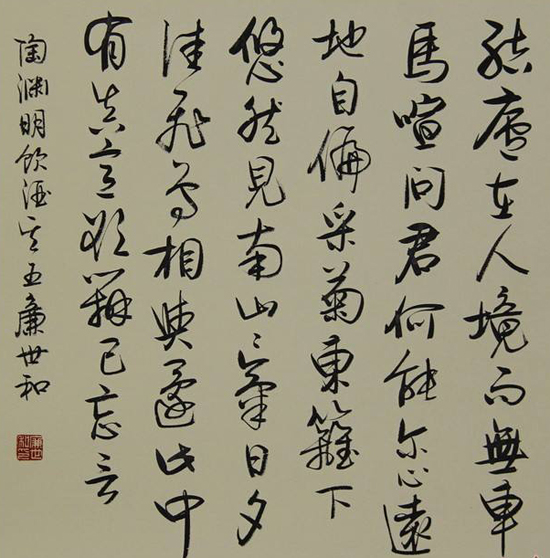 結廬在人境而無車
馬喧問君何能尔心遠
地自偏采菊東籬下
悠然見南山〻氣日夕
佳飛鳥相與還此中
有真意欲辨已忘言
陶淵明飲酒其五廉世和
廉世和印